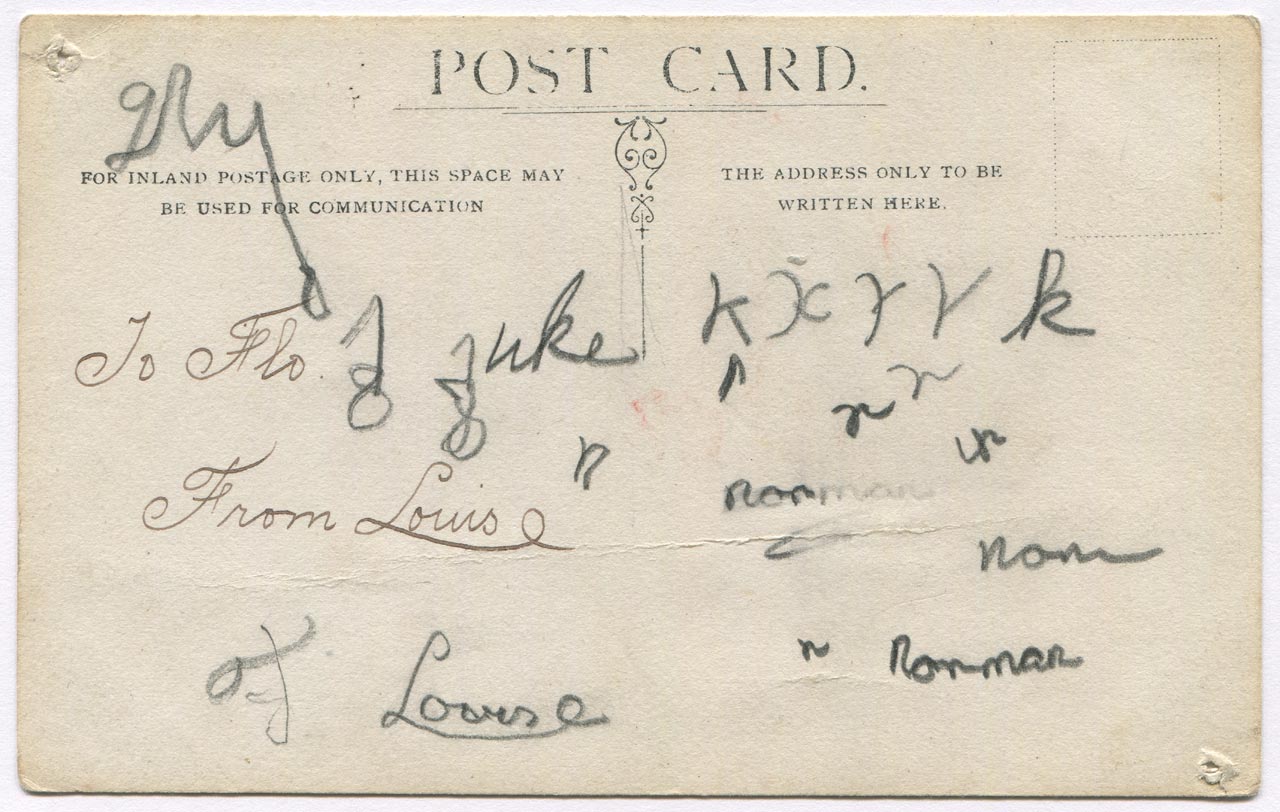 POST CARD.
FOR INLAND POSTAGE ONLY, THIS SPACE MAY
BE USED FOR COMMUNICATION
THE ADDRESS ONLY TO BE
WRITTEN HERE.
To Flo.
uke
k x r r k
n n
From Louise
n
norman
nom
Louise
n Norman